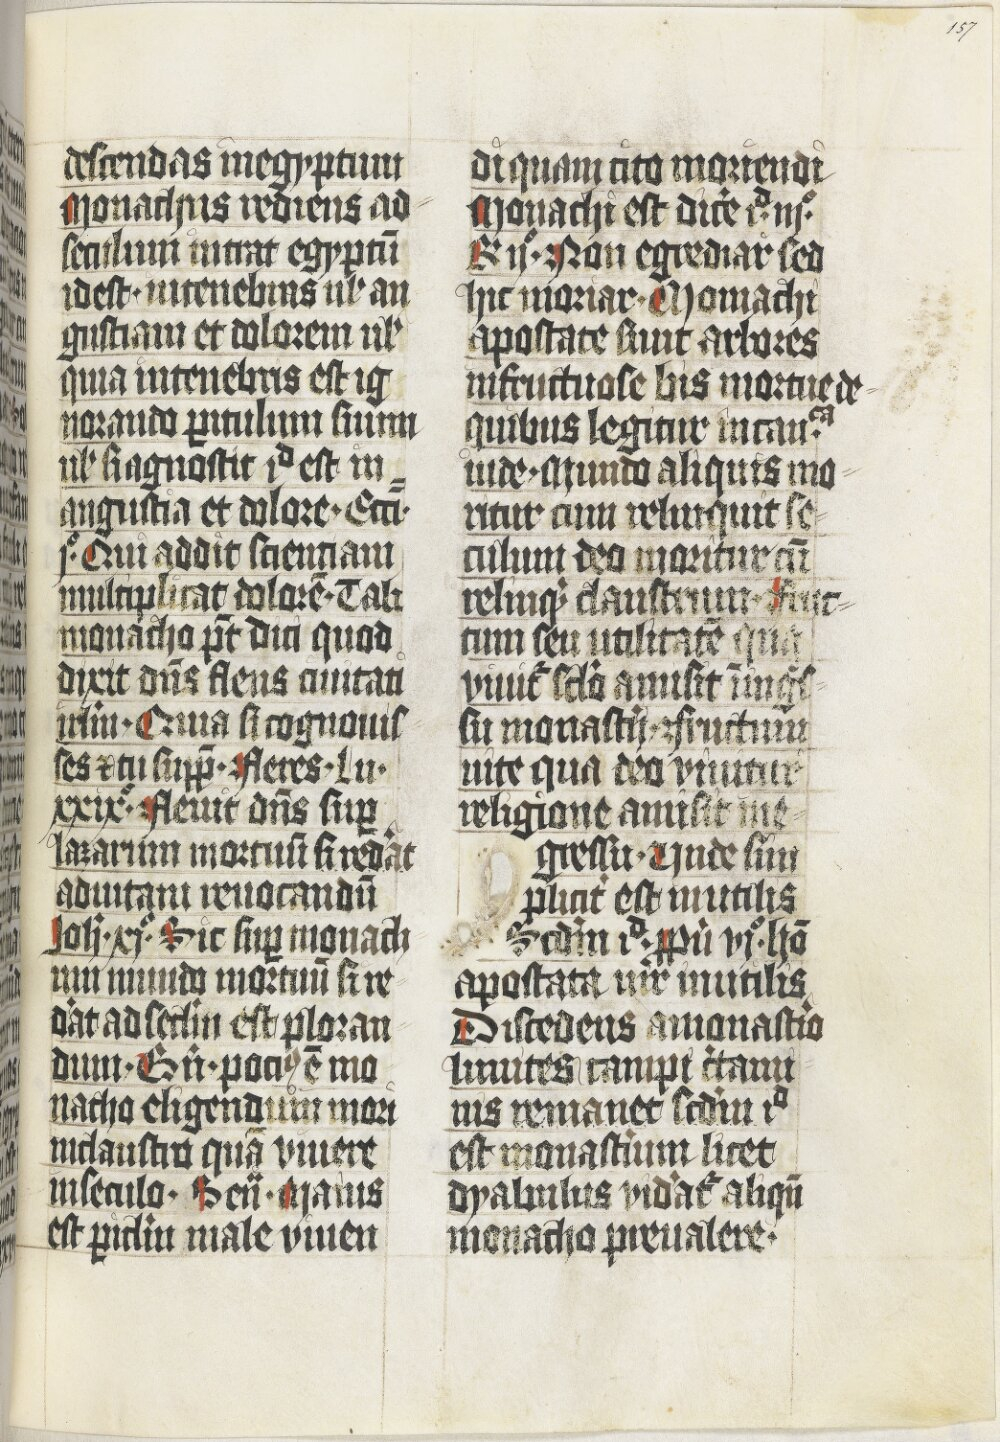 157
descendas inegyptum
Monachus rediens ad
seculum intrat egyptū
idest· intenebras ul' an
gustiam et dolorem ul'
quia intenebris est ig
norando pitulum suum
ul' si agnoscit id est in
angustia et dolore· Ecci·
j°· Qui addit scientiam
multiplicat dolorē· Tali
monacho pt̄ dici quod
dixit dn̄s flens ciuitati
irlm̄· Quia si cognouis
ses ⁊ tu supp̄· Fleres· Lu·
xxix°· Fleuit dn̄s sup
lazarum mortuū si redat
aduitam reuocandū
Joh· xj°· Sic sup monach
um mundo mortuū si re
dat ad seclm̄ est ploran
dum· potiꝰ ē mo
nacho eligendum mori
inclaustro quā viuere
inseculo· Seū· Maius
est piclm̄ male viuen
di quam cito moriendi
Monachi est dice id iij°·
R ij°· Non egrediar sed
hic moriar· Monachi
apostate sunt arbores
infructuose bis mortue de
quibus legitur in can·ca
iude· Mundo aliquis mo
ritur cum relinquit se
culum deo moritur cū
relinq̄ claustrum· Fruc
tum seu utilitatē qua
viuit sclo amisit
su monastij· Fructum
uite qua deo viuitur
religione amisit
gressu· Unde sim
plicit' est inutilis
Scdm id·
apostata uir inutilis
Discedens amonastio
limites campi
nis remanet scdm id
est monastium licet
dyabulus aliqū
monacho preualere·